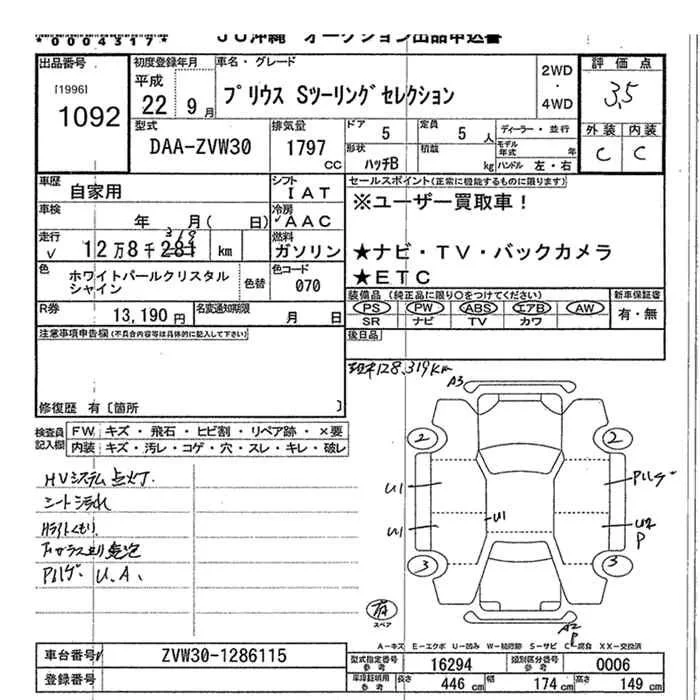 *0004317*
JU沖縄 オークション出品申込書
出品番号
[1996]
1092
初度登録年月
平成
22 9月
車名・グレード
プリウス Sツーリングセレクション
2WD
・
4WD
評価点
3.5
外装 内装
C C
型式
DAA-ZVW30
排気量
1797
CC
ドア 5
定員 5人
ディーラー・並行
形状 ハッチB
積載 kg
モデル年式 年
ハンドル 左・右
車歴
自家用
シフト
IAT
車検
年 月( 日)
冷房
AAC
走行
12万8千281 km
319
燃料
ガソリン
色
ホワイトパールクリスタル
シャイン
色替
色コード
070
R券
13,190円
名変通知期限
月 日
セールスポイント(正常に機能するものに限ります)
※ユーザー買取車!
★ナビ・TV・バックカメラ
★ETC
装備品(純正品に限り○をつけてください)
PS PW ABS エアB AW
SR ナビ TV カワ
新車保証書
有・無
後日品
注意事項申告欄(不具合内容等は具体的に記入して下さい)
修復歴 有〔箇所 〕
128,319km
検査員
記入欄
FW キズ・飛石・ヒビ割・リペア跡・×要
内装 キズ・汚レ・コゲ・穴・スレ・キレ・破レ
HVシステム点灯.
シート汚れ
Pハゲ. U.A.
A3
2 2
U1
Pハゲ
U1
U1
U2
P
3 3
有
スペア
A2
P
A-キズ E-エクボ U-凹み W-補修跡 S-サビ C-腐食 XX-交換済
車台番号
ZVW30-1286115
登録番号
型式指定番号
参考
16294
類別区分番号
参考
0006
車庫証明用
参考
長さ 446 cm
幅 174 cm
高さ 149 cm